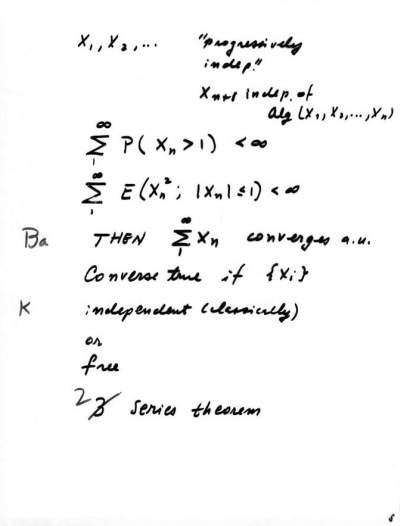 X₁, X₂, ... "progressively
indep."
Xₙ₊₁ indep. of
alg (X₁, X₂, ..., Xₙ)
∑₁^∞ P( Xₙ > 1) < ∞
∑₁^∞ E(Xₙ²; |Xₙ| ≤ 1) < ∞
Ba THEN ∑₁^∞ Xₙ converges a.u.
Converse true if {Xᵢ}
K independent (classically)
or
free
2 3 series theorem